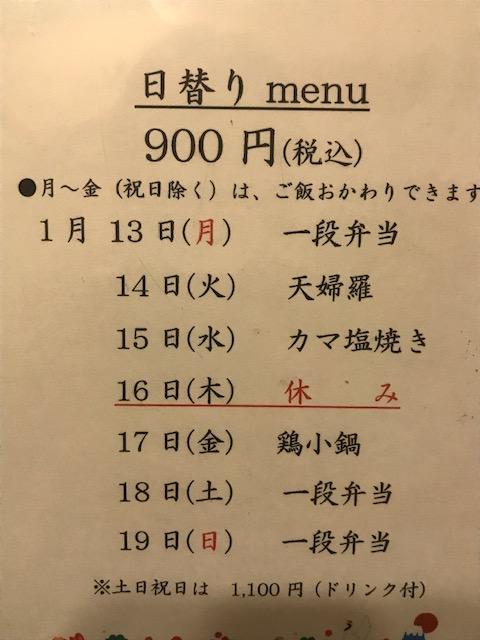 日替り menu
900 円(税込)
●月～金（祝日除く）は、ご飯おかわりできます
1 月 13 日(月) 一段弁当
14 日(火) 天婦羅
15 日(水) カマ塩焼き
16 日(木) 休 み
17 日(金) 鶏小鍋
18 日(土) 一段弁当
19 日(日) 一段弁当
※土日祝日は 1,100 円（ドリンク付）